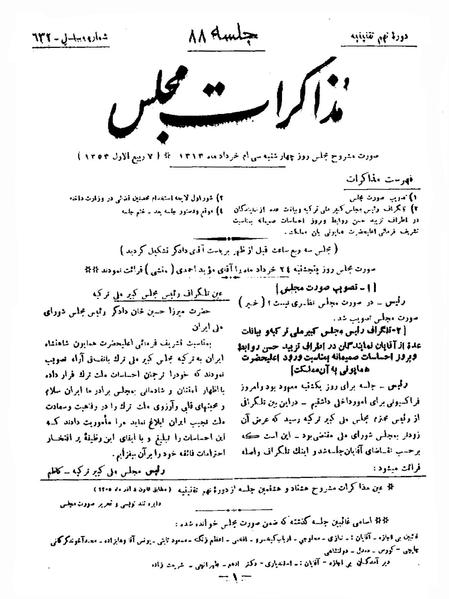 دورهٔ نهم تقنینیه
جلسه ۸۸
شماره مسلسل - ۶۳۲
مذاکرات مجلس
صورت مشروح مجلس روز چهارشنبه سی ام خرداد ماه ۱۳۱۳ * ( ۷ ربیع الاول ۱۳۵۳ )
فهرست مذاکرات
۱) تصویب صورت مجلس
۲) تلگراف رئیس مجلس کبیر ملی ترکیه و بیانات عده از نمایندگان
در اطراف تزیید حسن روابط و بروز احساسات صمیمانه بمناسبت
تشریف فرمائی اعلیحضرت همایونی بآن مملکت.
۳) شور اول لایحه استخدام محصلین قضائی در وزارت داخله
۴) موقع و دستور جلسه بعد - ختم جلسه
( مجلس سه ربع ساعت قبل از ظهر بریاست آقای دادگر تشکیل گردید )
صورت مجلس روز پنجشنبه ۲۴ خرداد ماه را آقای مؤید احمدی ( منشی ) قرائت نمودند **
[ ۱ - تصویب صورت مجلس ]
رئیس - در صورت مجلس نظری نیست ؟ ( خیر )
صورت مجلس تصویب شد.
[ ۲ - تلگراف رئیس مجلس کبیر ملی ترکیه و بیانات
عدهٔ از آقایان نمایندگان در اطراف تزیید حسن روابط
و بروز احساسات صمیمانه بمناسبت ورود اعلیحضرت
همایونی به آن مملکت ]
رئیس - جلسه برای روز یکشنبه معهود بود و امروز
فراکسیونی برای امور داخلی داشتیم - در این بین تلگرافی
از رئیس محترم مجلس کبیر ترکیه رسید که عرض آن
زودتر بمجلس شورای ملی مقتضی بود - این است که
برحسب تقاضای آقایان جلسه شد و اینک تلگراف واصله
قرائت میشود :
عین تلگراف رئیس مجلس کبیر ملی ترکیه
حضرت میرزا حسین خان دادگر رئیس مجلس شورای
ملی ایران
بمناسبت تشریف فرمائی اعلیحضرت همایون شاهنشاه
ایران به ترکیه مجلس کبیر ملی ترک باتفاق آراء تصویب
نموده که خود را ترجمان احساسات ملت ترک قرار داده
با اظهار امتنان و شادمانی بمجلس برادر ما ایران سلام
و محبتهای قلبی و آرزوی ملت ترک را در رفاهیت و سعادت
ملت نجیب ایران ابلاغ نماید مرا مأموریت دادند که
این احساسات را تبلیغ و با ایفای این وظیفهٔ پر افتخار
احترامات فائقه خود را بر آن میفزایم.
رئیس مجلس ملی کبیر ترکیه - کاظم
* عین مذاکرات مشروح هشتاد و هشتمین جلسه از دورهٔ نهم تقنینیه ( مطابق قانون ۸ آذر ماه ۱۳۰۵ )
دایره تند نویسی و تحریر صورت مجلس
* اسامی غائبین جلسه گذشته که ضمن صورت مجلس خوانده شده :
دیر آمدگان بی اجازه - آقایان :
- ۱ -